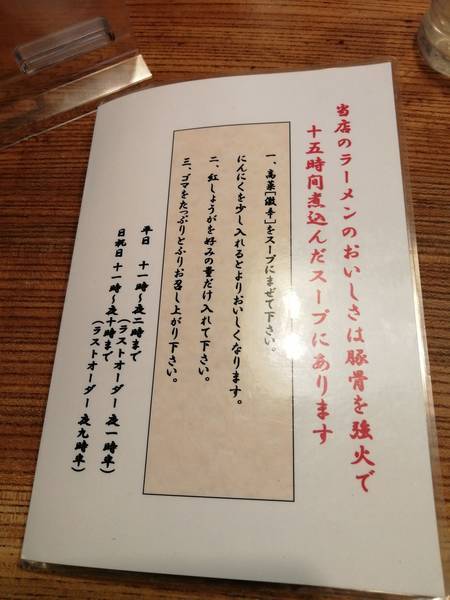 当店のラーメンのおいしさは豚骨を強火で
十五時間煮込んだスープにあります
一、高菜［激辛］をスープにまぜて下さい。
にんにくを少し入れるとよりおいしくなります。
二、紅しょうがを好みの量だけ入れて下さい。
三、ゴマをたっぷりとふりお召し上がり下さい。
平日 十一時～夜二時まで
（ラストオーダー 夜一時半）
日祝日 十一時～夜十時まで
（ラストオーダー 夜九時半）